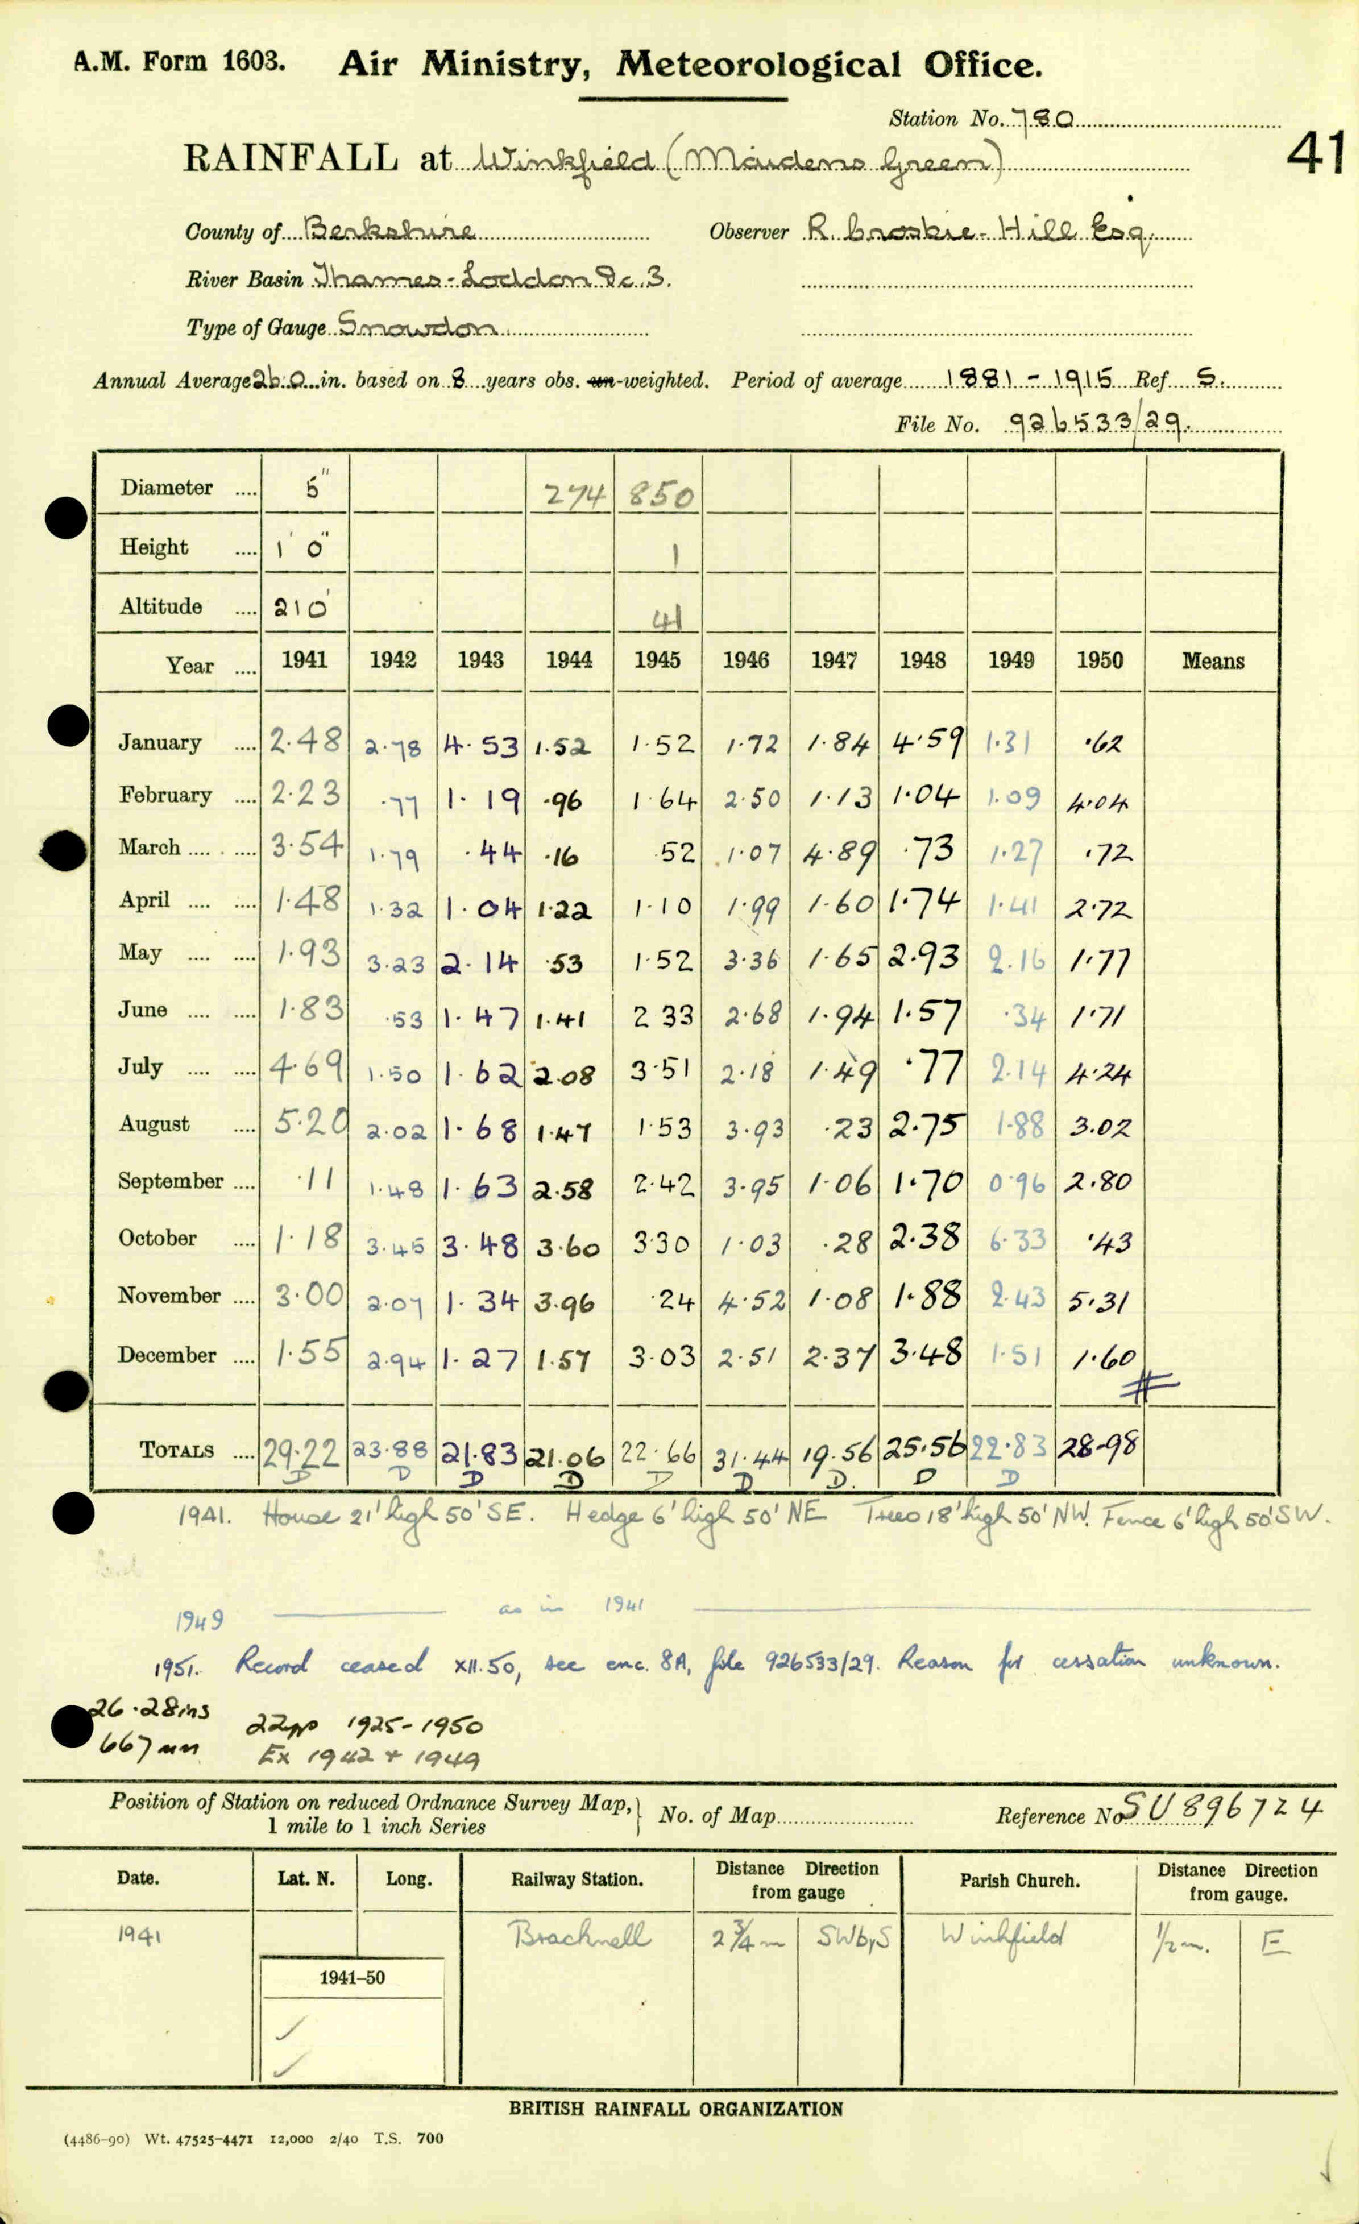 A.M. Form 1603. Air Ministry, Meteorological Office.
Station No. 780
41
RAINFALL at Winkfield (Maidens Green)
County of Berkshire Observer R. Croskie-Hill Esq.
River Basin Thames-Loddon &c. 3.
Type of Gauge Snowdon
Annual Average 26.0 in. based on 8 years obs. un-weighted. Period of average 1881 - 1915 Ref S.
File No. 926533/29.
Diameter .... 5" 274 850
Height .... 1' 0" 1
Altitude .... 210' 41
Year .... 1941 1942 1943 1944 1945 1946 1947 1948 1949 1950 Means
January .... 2.48 2.78 4.53 1.52 1.52 1.72 1.84 4.59 1.31 .62
February .... 2.23 .77 1.19 .96 1.64 2.50 1.13 1.04 1.09 4.04
March .... .... 3.54 1.79 .44 .16 .52 1.07 4.89 .73 1.27 .72
April .... .... 1.48 1.32 1.04 1.22 1.10 1.99 1.60 1.74 1.41 2.72
May .... .... 1.93 3.23 2.14 .53 1.52 3.36 1.65 2.93 2.16 1.77
June .... .... 1.83 .53 1.47 1.41 2 33 2.68 1.94 1.57 .34 1.71
July .... .... 4.69 1.50 1.62 2.08 3.51 2.18 1.49 .77 2.14 4.24
August .... 5.20 2.02 1.68 1.47 1.53 3.93 .23 2.75 1.88 3.02
September .... .11 1.48 1.63 2.58 2.42 3.95 1.06 1.70 0.96 2.80
October .... 1.18 3.45 3.48 3.60 3.30 1.03 .28 2.38 6.33 .43
November .... 3.00 2.07 1.34 3.96 .24 4.52 1.08 1.88 2.43 5.31
December .... 1.55 2.94 1.27 1.57 3.03 2.51 2.37 3.48 1.51 1.60
#
TOTALS .... 29.22 23.88 21.83 21.06 22.66 31.44 19.56 25.56 22.83 28.98
D D D D D D D. D D
1941. House 21' high 50' SE. Hedge 6' high 50' NE Trees 18' high 50' NW. Fence 6' high 50' SW.
1949 as in 1941
1951. Record ceased XII.50, see enc. 8A, file 926533/29. Reason for cessation unknown.
26.28 ins 22 1925-1950
667 mm Ex 1942 + 1949
Position of Station on reduced Ordnance Survey Map, 1 mile to 1 inch Series } No. of Map Reference No SU 896724
Date. Lat. N. Long. Railway Station. Distance Direction from gauge Parish Church. Distance Direction from gauge.
1941 Bracknell 2 3/4 m SWbyS Winkfield 1/2 m. E
1941–50
✓
✓
BRITISH RAINFALL ORGANIZATION
(4486-90) Wt. 47525-4471 12,000 2/40 T.S. 700